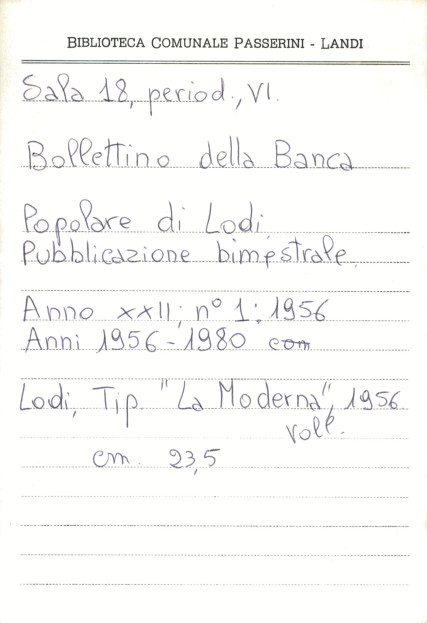 BIBLIOTECA COMUNALE PASSERINI - LANDI
Sala 18, period., VI.
Bollettino della Banca
Popolare di Lodi.
Pubblicazione bimestrale.
Anno XXII; n° 1: 1956
Anni 1956-1980 com
Lodi, Tip. "La Moderna", 1956
voll.
cm. 23,5